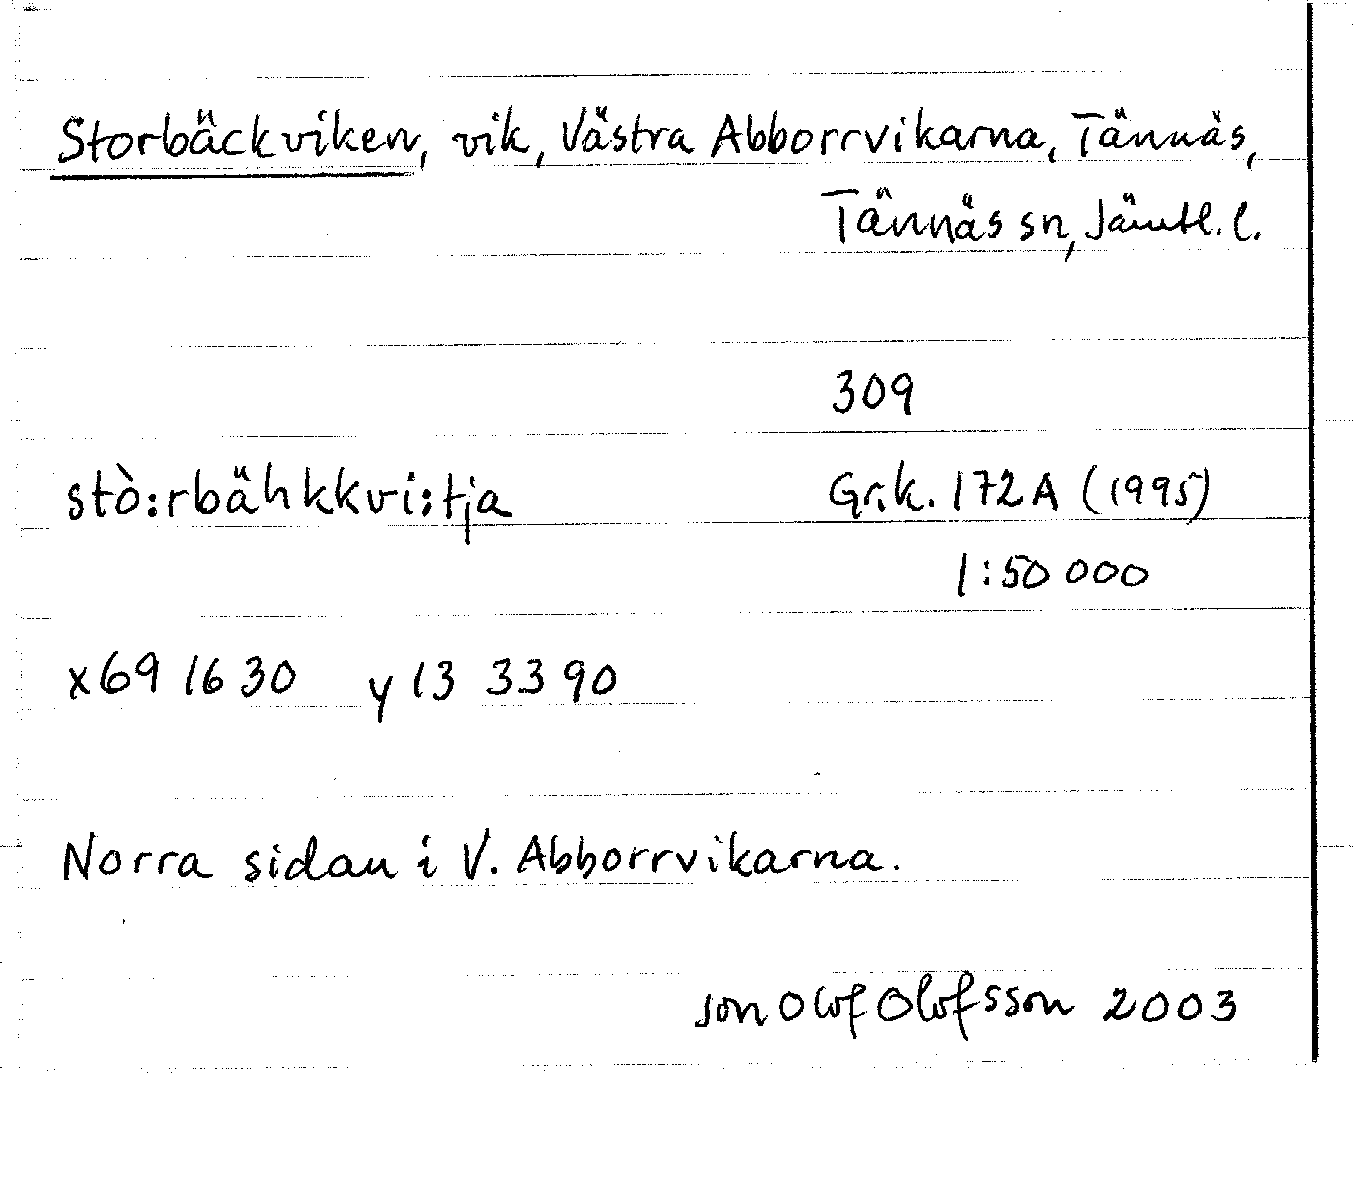 Storbäckviken, vik, Västra Abborrvikarna, Tännäs,
Tännäs sn, Jämtl. l.
309
stò:rbähkkvi:tja Gr.k. 172A (1995)
1:50 000
x69 16 30 y13 33 90
Norra sidan i V. Abborrvikarna.
Jon Olof Olofsson 2003